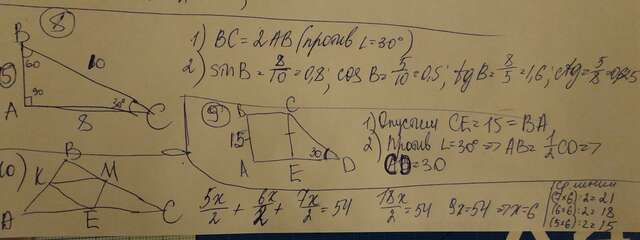 8
B
60
10
5
90
30°
A
8
C
1) BC = 2AB (против ∠=30°)
2) sin B = 8/10 = 0,8; cos B = 5/10 = 0,5; tg B = 8/5 = 1,6; ctg = 5/8 =
9
B
C
15
30
A
E
D
1) Опустим CE = 15 = BA
2) Против ∠=30° => AB = 1/2 CD =>
CD = 30
10)
B
K
M
A
E
C
5x/2 + 6x/2 + 7x/2 = 54
18x/2 = 54
9x = 54 => x = 6
Ср линии
(7×6):2 = 21
(6×6):2 = 18
(5×6):2 = 15